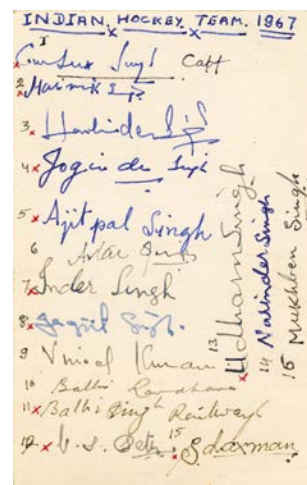 INDIAN. HOCKEY. TEAM. 1967
1 Gurbux Singh Capt
2 Harmik Singh
3 Harbinder Singh
4 Joginder Singh
5 Ajit pal Singh
6 Avtar Singh
7 Inder Singh
8 Jagjit Singh.
9 Vinod Kumar
10 Balbir Randhawa
11 Balbir Singh Railways
12
15 S. Laxman
13 Udham Singh
14 Narinder Singh
15 Mukhben Singh